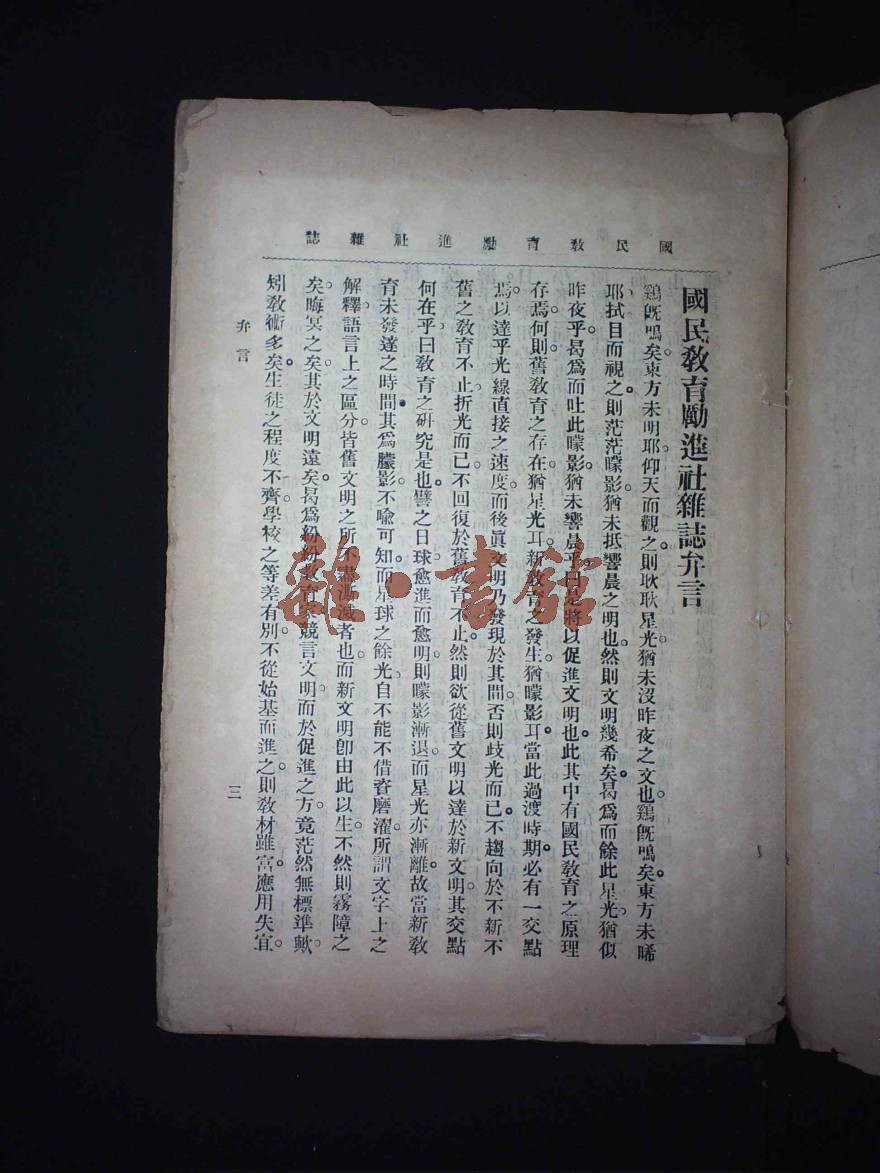 國民教育勵進社雜誌
國民教育勵進社雜誌弁言
鷄旣鳴矣。東方未明耶。仰天而觀之。則耿耿星光。猶未沒昨夜之文也。鷄旣鳴矣。東方未晞
耶。拭目而視之。則茫茫曚影。猶未抵響晨之明也。然則文明幾希矣。曷爲而餘此星光。猶似
昨夜乎。曷爲而吐此曚影。猶未響晨乎。曰是將以促進文明也。此其中有國民教育之原理
存焉。何則。舊教育之存在。猶星光耳。新教育之發生。猶曚影耳。當此過渡時期。必有一交點
焉。以達乎光線直接之速度。而後眞文明乃發現於其間。否則歧光而已。不趨向於不新不
舊之教育不止。折光而已。不回復於舊教育不止。然則欲從舊文明以達於新文明。其交點
何在乎。曰教育之研究是也。譬之日球愈進而愈明。則曚影漸退。而星光亦漸離。故當新教
育未發達之時間。其爲朦影。不喩可知。而星球之餘光。自不能不借資磨濯。所謂文字上之
解釋。語言上之區分。皆舊文明之所不盡澌滅者也。而新文明卽由此以生。不然。則霧障之
矣。晦冥之矣。其於文明遠矣。曷爲紛紛教育家競言文明。而於促進之方。竟茫然無標準歟。
矧教術多矣。生徒之程度不齊。學校之等差有別。不從始基而進之。則教材雖富。應用失宜。
弁言
三
雜·書館